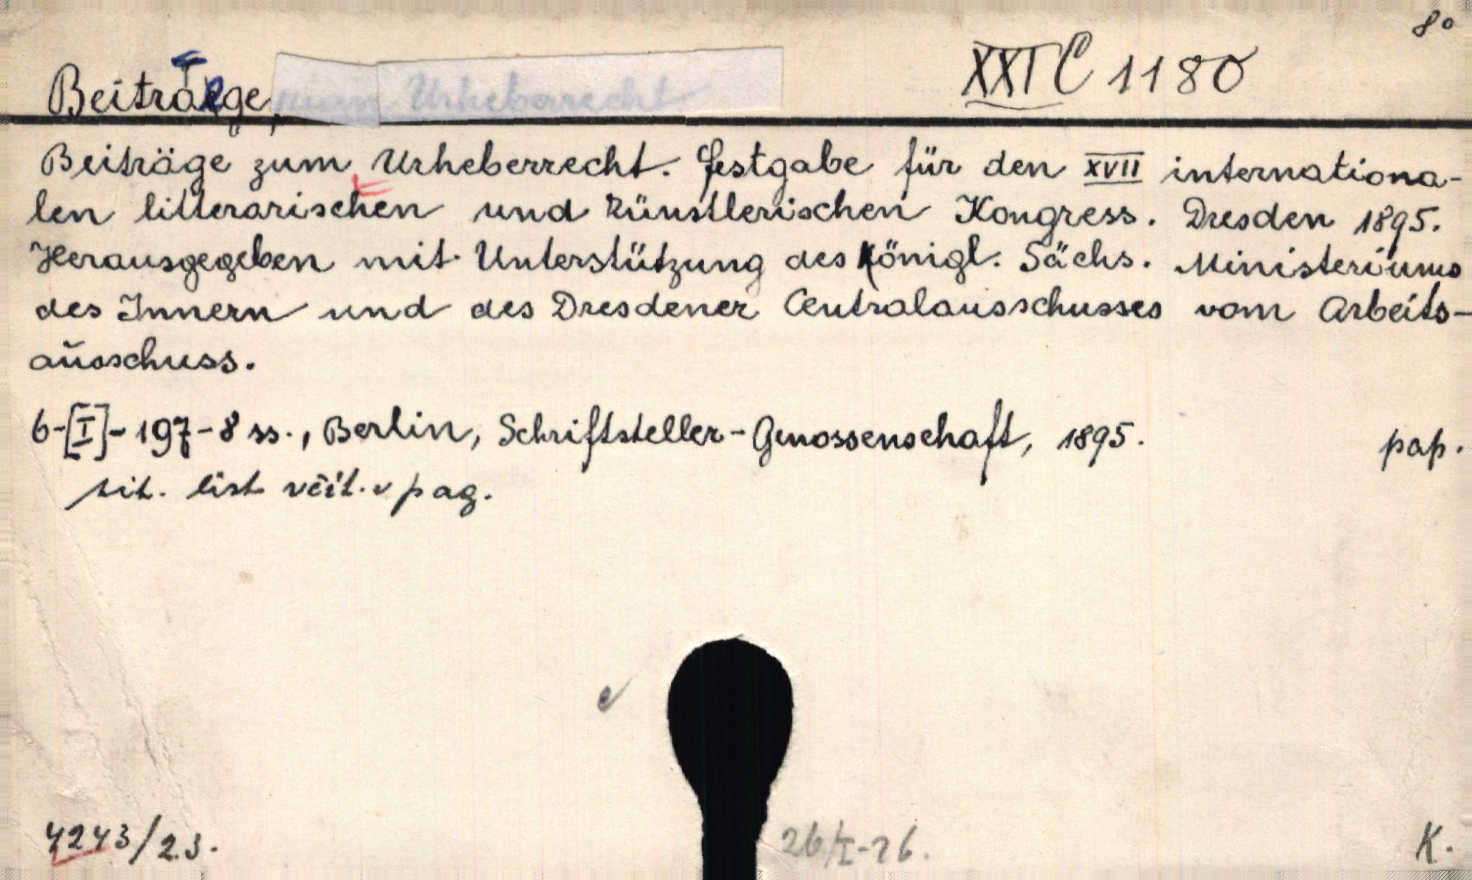 8°
XXI C 1180
Beitraege, zum Urheberrecht
Beiträge zum Urheberrecht. Festgabe für den XVII internationa-
len litterarischen und künstlerischen Kongress. Dresden 1895.
Herausgegeben mit Unterstützung des Königl. Sächs. Ministeriums
des Innern und des Dresdener Centralausschusses vom Arbeits-
ausschuss.
6-[I]-197-8 ss., Berlin, Schriftsteller-Genossenschaft, 1895. pap.
tit. list včít. v pag.
4243/23. 26/I-26. K.